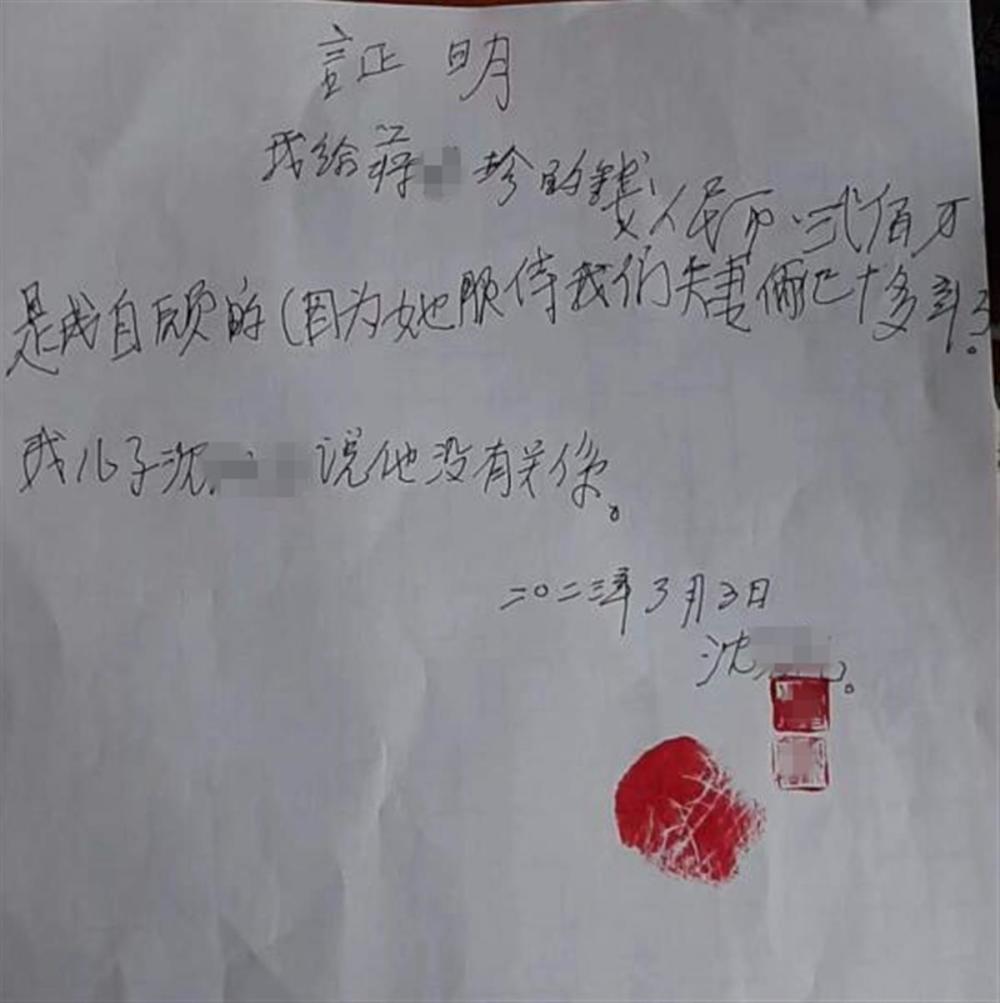 証明
我给蒋珍的錢人民币弍佰万
是我自愿的(因为她服侍我们夫妻俩已十多年了。
我儿子沈说他没有关係。
二〇二三年3月3日
沈。